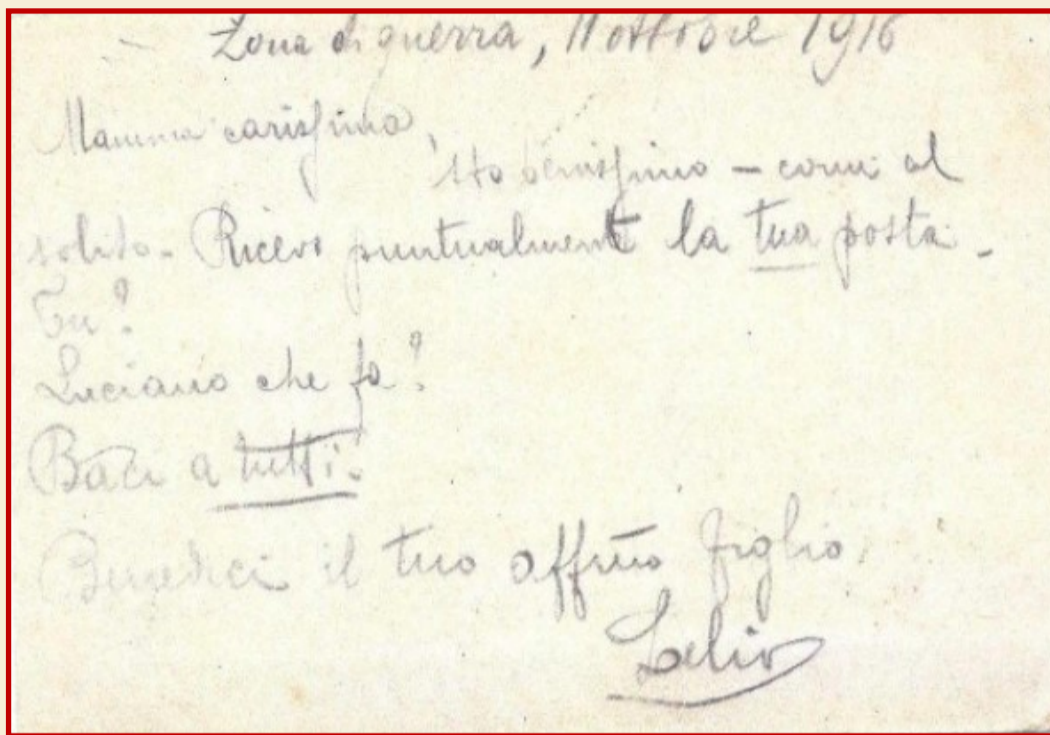 Zona di guerra, 11 ottobre 1916
Mamma carissima,
Sto benissimo – come al
solito – Ricevo puntualmente la tua posta –
Tu?
Luciano che fa?
Baci a tutti.
Benedici il tuo affmo figlio
Lelio